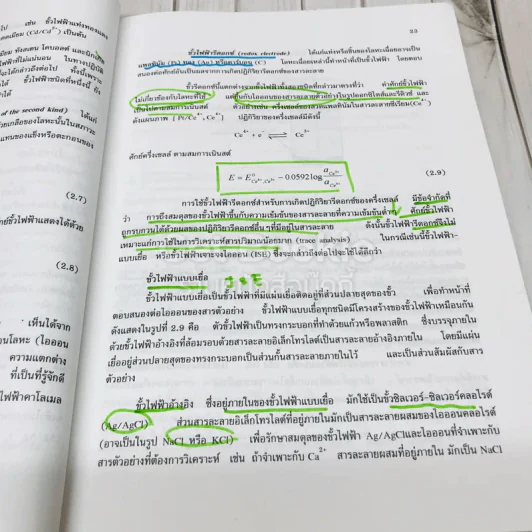 23
ขั้วไฟฟ้ารีดอกซ์ (redox electrode) ได้แก่แท่งหรือชิ้นของโลหะเฉื่อยอาจเป็น
แพลทินัม (Pt) ทอง (Au) หรือคาร์บอน (C) โลหะเฉื่อยเหล่านี้ทำหน้าที่เป็นขั้วไฟฟ้า โดยตอบ
สนองต่อศักย์อันเป็นผลจากการเกิดปฏิกิริยารีดอกซ์ของสารละลาย
ขั้วรีดอกซ์นี้แตกต่างจากขั้วไฟฟ้าทั้งสองชนิดที่กล่าวมาตรงที่ว่า ค่าศักย์ขั้วไฟฟ้า
ไม่เกี่ยวข้องกับโลหะที่ใช้ แต่ขึ้นกับไอออนของสารละลายตัวอย่างในรูปออกซิไดส์และรีดิวซ์ และ
เป็นไปตามสมการเนินสต์ ตัวอย่างเช่น ครึ่งเซลล์ของลวดแพลทินัมในสารละลายซีเรียม(Ce⁴⁺)
ดังแผนภาพ | Pt/Ce⁴⁺, Ce³⁺ ปฏิกิริยาของครึ่งเซลล์มีดังนี้
Ce⁴⁺ + e⁻ ⇌ Ce³⁺
ศักย์ครึ่งเซลล์ ตามสมการเนินสต์
(2.9)
การใช้ขั้วไฟฟ้ารีดอกซ์สำหรับการเกิดปฏิกิริยารีดอกซ์ของครึ่งเซลล์ มีข้อจำกัดที่
ว่า การถึงสมดุลของขั้วไฟฟ้าขึ้นกับความเข้มข้นของสารละลายที่ความเข้มข้นต่ำๆ ศักย์ขั้วไฟฟ้า
ถูกรบกวนได้ด้วยผลของปฏิกิริยารีดอกซ์อื่น ๆที่มีอยู่ในสารละลาย ดังนั้นขั้วไฟฟ้ารีดอกซ์จึงไม่
เหมาะแก่การใช้ในการวิเคราะห์สารปริมาณน้อยมาก (trace analysis) ในกรณีเช่นนี้ขั้วไฟฟ้า-
แบบเยื่อ หรือขั้วไฟฟ้าเจาะจงไอออน (ISE) ซึ่งจะกล่าวถึงต่อไปจะใช้ได้ดีกว่า
ขั้วไฟฟ้าแบบเยื่อ ISE
ขั้วไฟฟ้าแบบเยื่อเป็นขั้วไฟฟ้าที่มีแผ่นเยื่อติดอยู่ที่ส่วนปลายสุดของขั้ว เพื่อทำหน้าที่
ตอบสนองต่อไอออนของสารตัวอย่าง ขั้วไฟฟ้าแบบเยื่อทุกชนิดมีโครงสร้างของขั้วไฟฟ้าเหมือนกัน
ดังแสดงในรูปที่ 2.9 คือ ตัวขั้วไฟฟ้าเป็นทรงกระบอกที่ทำด้วยแก้วหรือพลาสติก ซึ่งบรรจุภายใน
ด้วยขั้วไฟฟ้าอ้างอิงที่ล้อมรอบด้วยสารละลายอิเล็กโทรไลต์เป็นสารละลายอ้างอิงภายใน โดยมีแผ่น
เยื่ออยู่ส่วนปลายสุดของทรงกระบอกเป็นส่วนกั้นสารละลายภายในไว้ และเป็นส่วนสัมผัสกับสาร
ตัวอย่าง
ขั้วไฟฟ้าอ้างอิง ซึ่งอยู่ภายในของขั้วไฟฟ้าแบบเยื่อ มักใช้เป็นขั้วซิลเวอร์-ซิลเวอร์คลอไรด์
(Ag/AgCl) ส่วนสารละลายอิเล็กโทรไลต์ที่อยู่ภายในมักเป็นสารละลายผสมของไอออนคลอไรด์
(อาจเป็นในรูป NaCl หรือ KCl) เพื่อรักษาสมดุลของขั้วไฟฟ้า Ag/AgClและไอออนที่จำเพาะกับ
สารตัวอย่างที่ต้องการวิเคราะห์ เช่น ถ้าจำเพาะกับ Ca²⁺ สารละลายผสมที่อยู่ภายใน มักเป็น NaCl
ไป เช่น ขั้วไฟฟ้าแท่งทองแดง
(Cd/Cd²⁺) เป็นต้น
of the second kind) ได้แก่
(2.7)
ศักย์ขั้วไฟฟ้าแสดงได้ด้วย
(2.8)
เห็นได้จาก
ความแตกต่าง
ที่เป็นที่รู้จักดี
ไฟฟ้าคาโลเมล